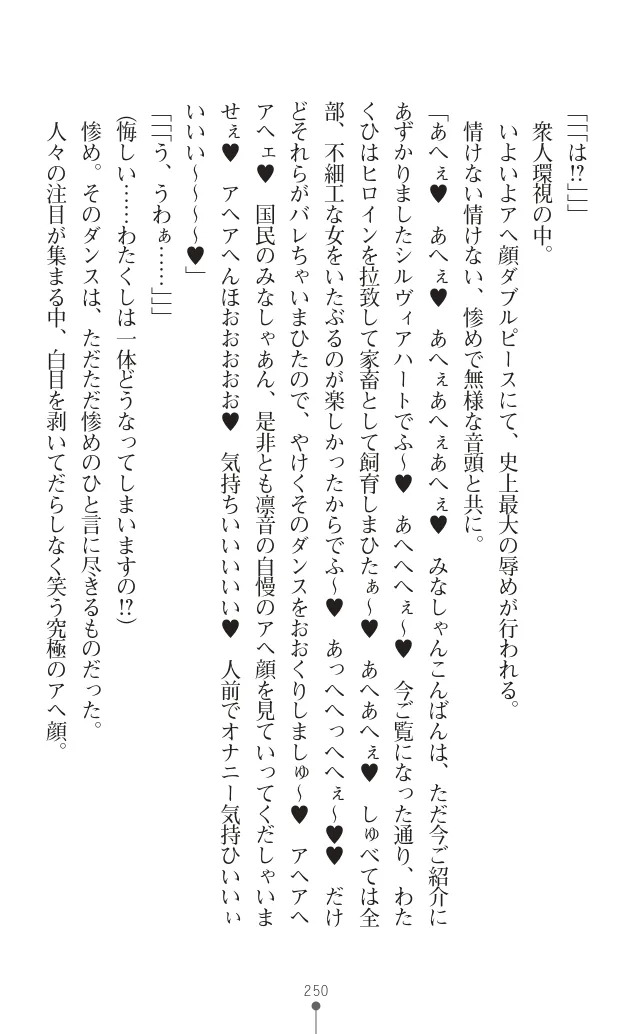 「「「は!?」」」
衆人環視の中。
いよいよアヘ顔ダブルピースにて、史上最大の辱めが行われる。
情けない情けない、惨めで無様な音頭と共に。
「あへぇ♥　あへぇ♥　あへぇあへぇあへぇ♥　みなしゃんこんばんは、ただ今ご紹介に
あずかりましたシルヴィアハートでふ〜♥　あへへへぇ〜♥　今ご覧になった通り、わた
くひはヒロインを拉致して家畜として飼育しまひたぁ〜♥　あへあへぇ♥　しゅべては全
部、不細工な女をいたぶるのが楽しかったからでふ〜♥　あっへへっへへぇ〜♥♥　だけ
どそれらがバレちゃいまひたので、やけくそのダンスをおおくりしましゅ〜♥　アヘアヘ
アヘェ♥　国民のみなしゃあん、是非とも凛音の自慢のアヘ顔を見ていってくだしゃいま
せぇ♥　アヘアへんほおおおおお♥　気持ちいいいいい♥　人前でオナニー気持ひいいぃ
いいい〜〜〜〜♥」
「「「う、うわぁ……」」」
(悔しい……わたくしは一体どうなってしまいますの!?)
惨め。そのダンスは、ただただ惨めのひと言に尽きるものだった。
人々の注目が集まる中、白目を剥いてだらしなく笑う究極のアヘ顔。
250